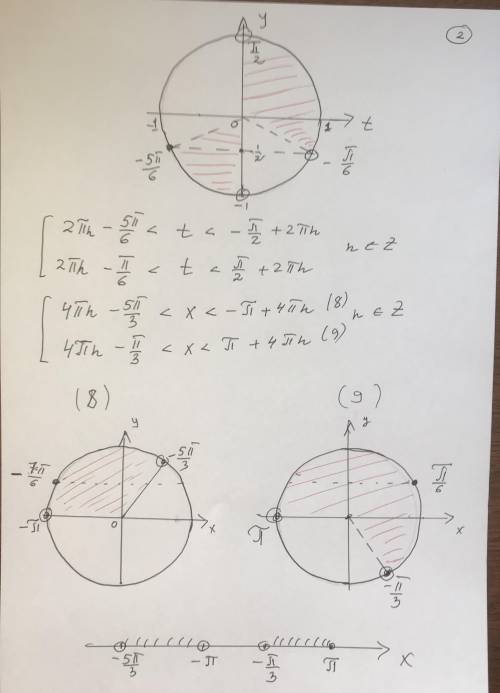 y
2
π/2
-1
0
1
t
-5π/6
-1/2
-π/6
-1
[ 2πn - 5π/6 < t < -π/2 + 2πn
2πn - π/6 < t < π/2 + 2πn
n ∈ Z
[ 4πn - 5π/3 < x < -π + 4πn (8)
4πn - π/3 < x < π + 4πn (9)
n ∈ Z
(8)
(9)
y
-5π/3
-7π/6
-π
0
x
y
π/6
π
x
-π/3
-5π/3
-π
-π/3
π
x